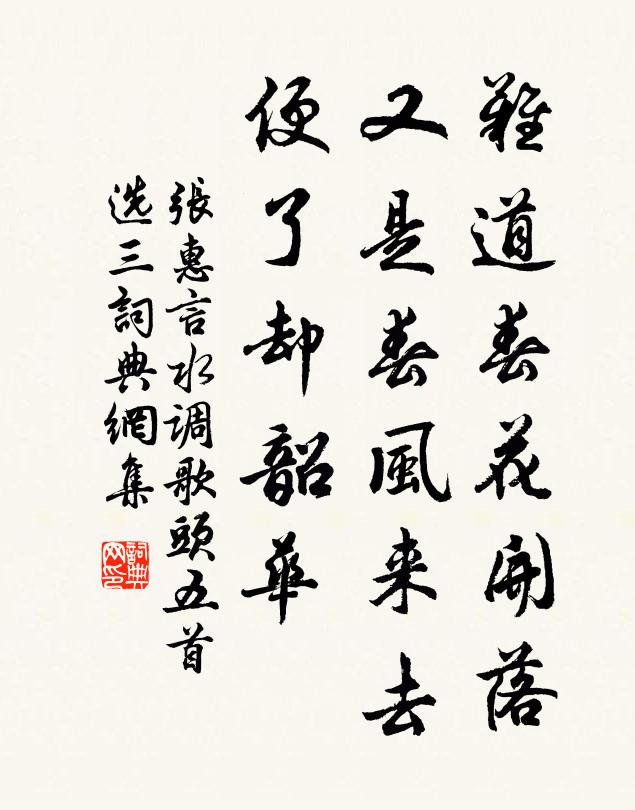 難道春花開落
又是春風来去
便了却韶華
張惠言水调歌頭五首
选三詞典網集
詞典网印